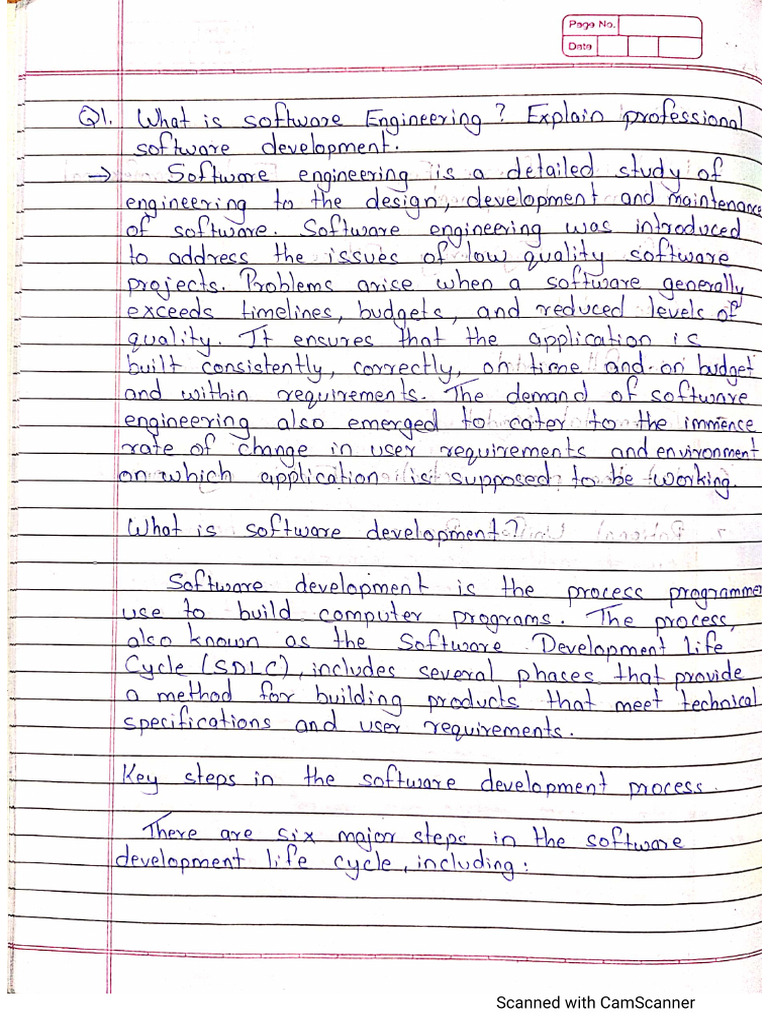 Page No.
Date
Q1. What is software Engineering? Explain professional
software development.
→ Software engineering is a detailed study of
engineering to the design, development and maintenance
of software. Software engineering was introduced
to address the issues of low quality software
projects. Problems arise when a software generally
exceeds timelines, budgets, and reduced levels of
quality. It ensures that the application is
built consistently, correctly, on time and on budget
and within requirements. The demand of software
engineering also emerged to cater to the immence
rate of change in user requirements and environment
on which application is supposed to be working.
What is software development?
Software development is the process programmer
use to build computer programs. The process,
also known as the Software Development life
Cycle (SDLC), includes several phases that provide
a method for building products that meet technical
specifications and user requirements.
Key steps in the software development process.
There are six major steps in the software
development life cycle, including:
Scanned with CamScanner